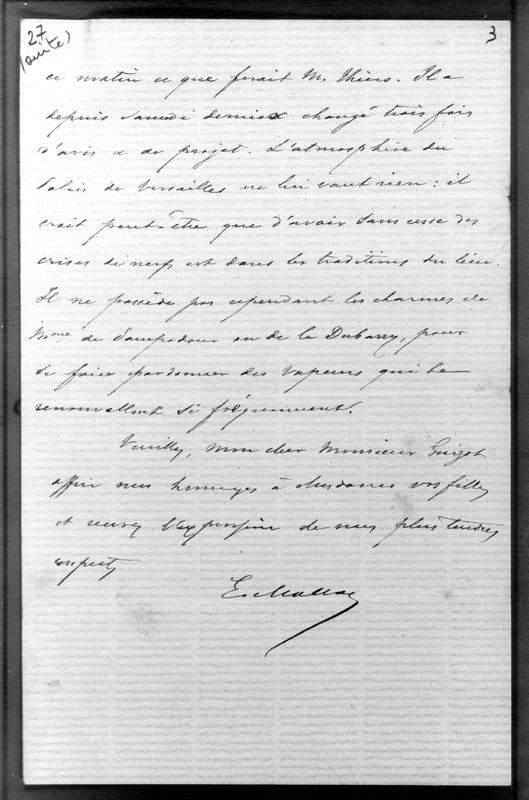 27
(suite)
3
ce matin ce que ferait M. Thiers. Il a
depuis Samedi dernier changé trois fois
d'avis & de projet. L'atmosphère du
Palais de Versailles ne lui vaut rien : il
croit peut-être que d'avoir sans cesse des
crises de nerfs est dans les traditions du lieu.
Il ne possède pas cependant les charmes de
Mme de Pompadour ou de la Dubarry, pour
se faire pardonner des vapeurs qui se
renouvellent si fréquemment.
Veuillez, mon cher Monsieur Guizot
offrir mes hommages à Mesdames vos filles
et recevez l'expression de mes plus tendres
respects
E. Mallac